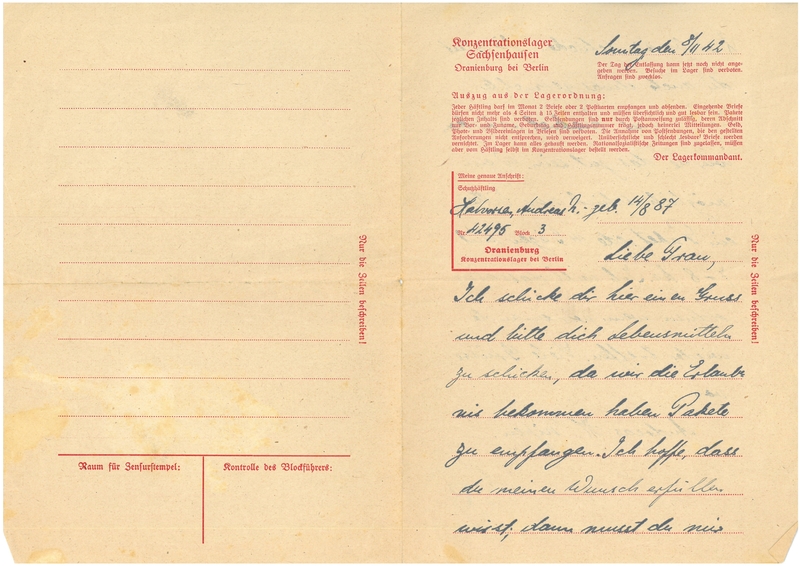 Nur die Zeilen beschreiben!
Raum für Zensurstempel:
Kontrolle des Blockführers:
Konzentrationslager
Sachsenhausen
Oranienburg bei Berlin
Sonntag den 8/11 42
Der Tag der Entlassung kann jetzt noch nicht ange-
geben werden. Besuche im Lager sind verboten.
Anfragen sind zwecklos.
Auszug aus der Lagerordnung:
Jeder Häftling darf im Monat 2 Briefe oder 2 Postkarten empfangen und absenden. Eingehende Briefe
dürfen nicht mehr als 4 Seiten à 15 Zeilen enthalten und müssen übersichtlich und gut lesbar sein. Pakete
jeglichen Inhalts sind verboten. Geldsendungen sind nur durch Postanweisung zulässig, deren Abschnitt
nur Vor- und Zuname, Geburtstag, Häftlingsnummer trägt, jedoch keinerlei Mitteilungen. Geld,
Photos und Bildereinlagen in Briefen sind verboten. Die Annahme von Postsendungen, die den gestellten
Anforderungen nicht entsprechen, wird verweigert. Unübersichtliche und schlecht lesbare Briefe werden
vernichtet. Im Lager kann alles gekauft werden. Nationalsozialistische Zeitungen sind zugelassen, müssen
aber vom Häftling selbst im Konzentrationslager bestellt werden.
Der Lagerkommandant.
Meine genaue Anschrift:
Schutzhäftling
Halvorsen, Andreas N. - geb. 14/8 87
Nr. 42495 Block 3
Oranienburg
Konzentrationslager bei Berlin
Liebe Frau,
Ich schicke dir hier einen Gruss
und bitte dich Lebensmitteln
zu schicken, da wir die Erlaub
nis bekommen haben Pakete
zu empfangen. Ich hoffe, dass
du meinen Wunsch erfüllen
wirst, dann musst du mir
Nur die Zeilen beschreiben!